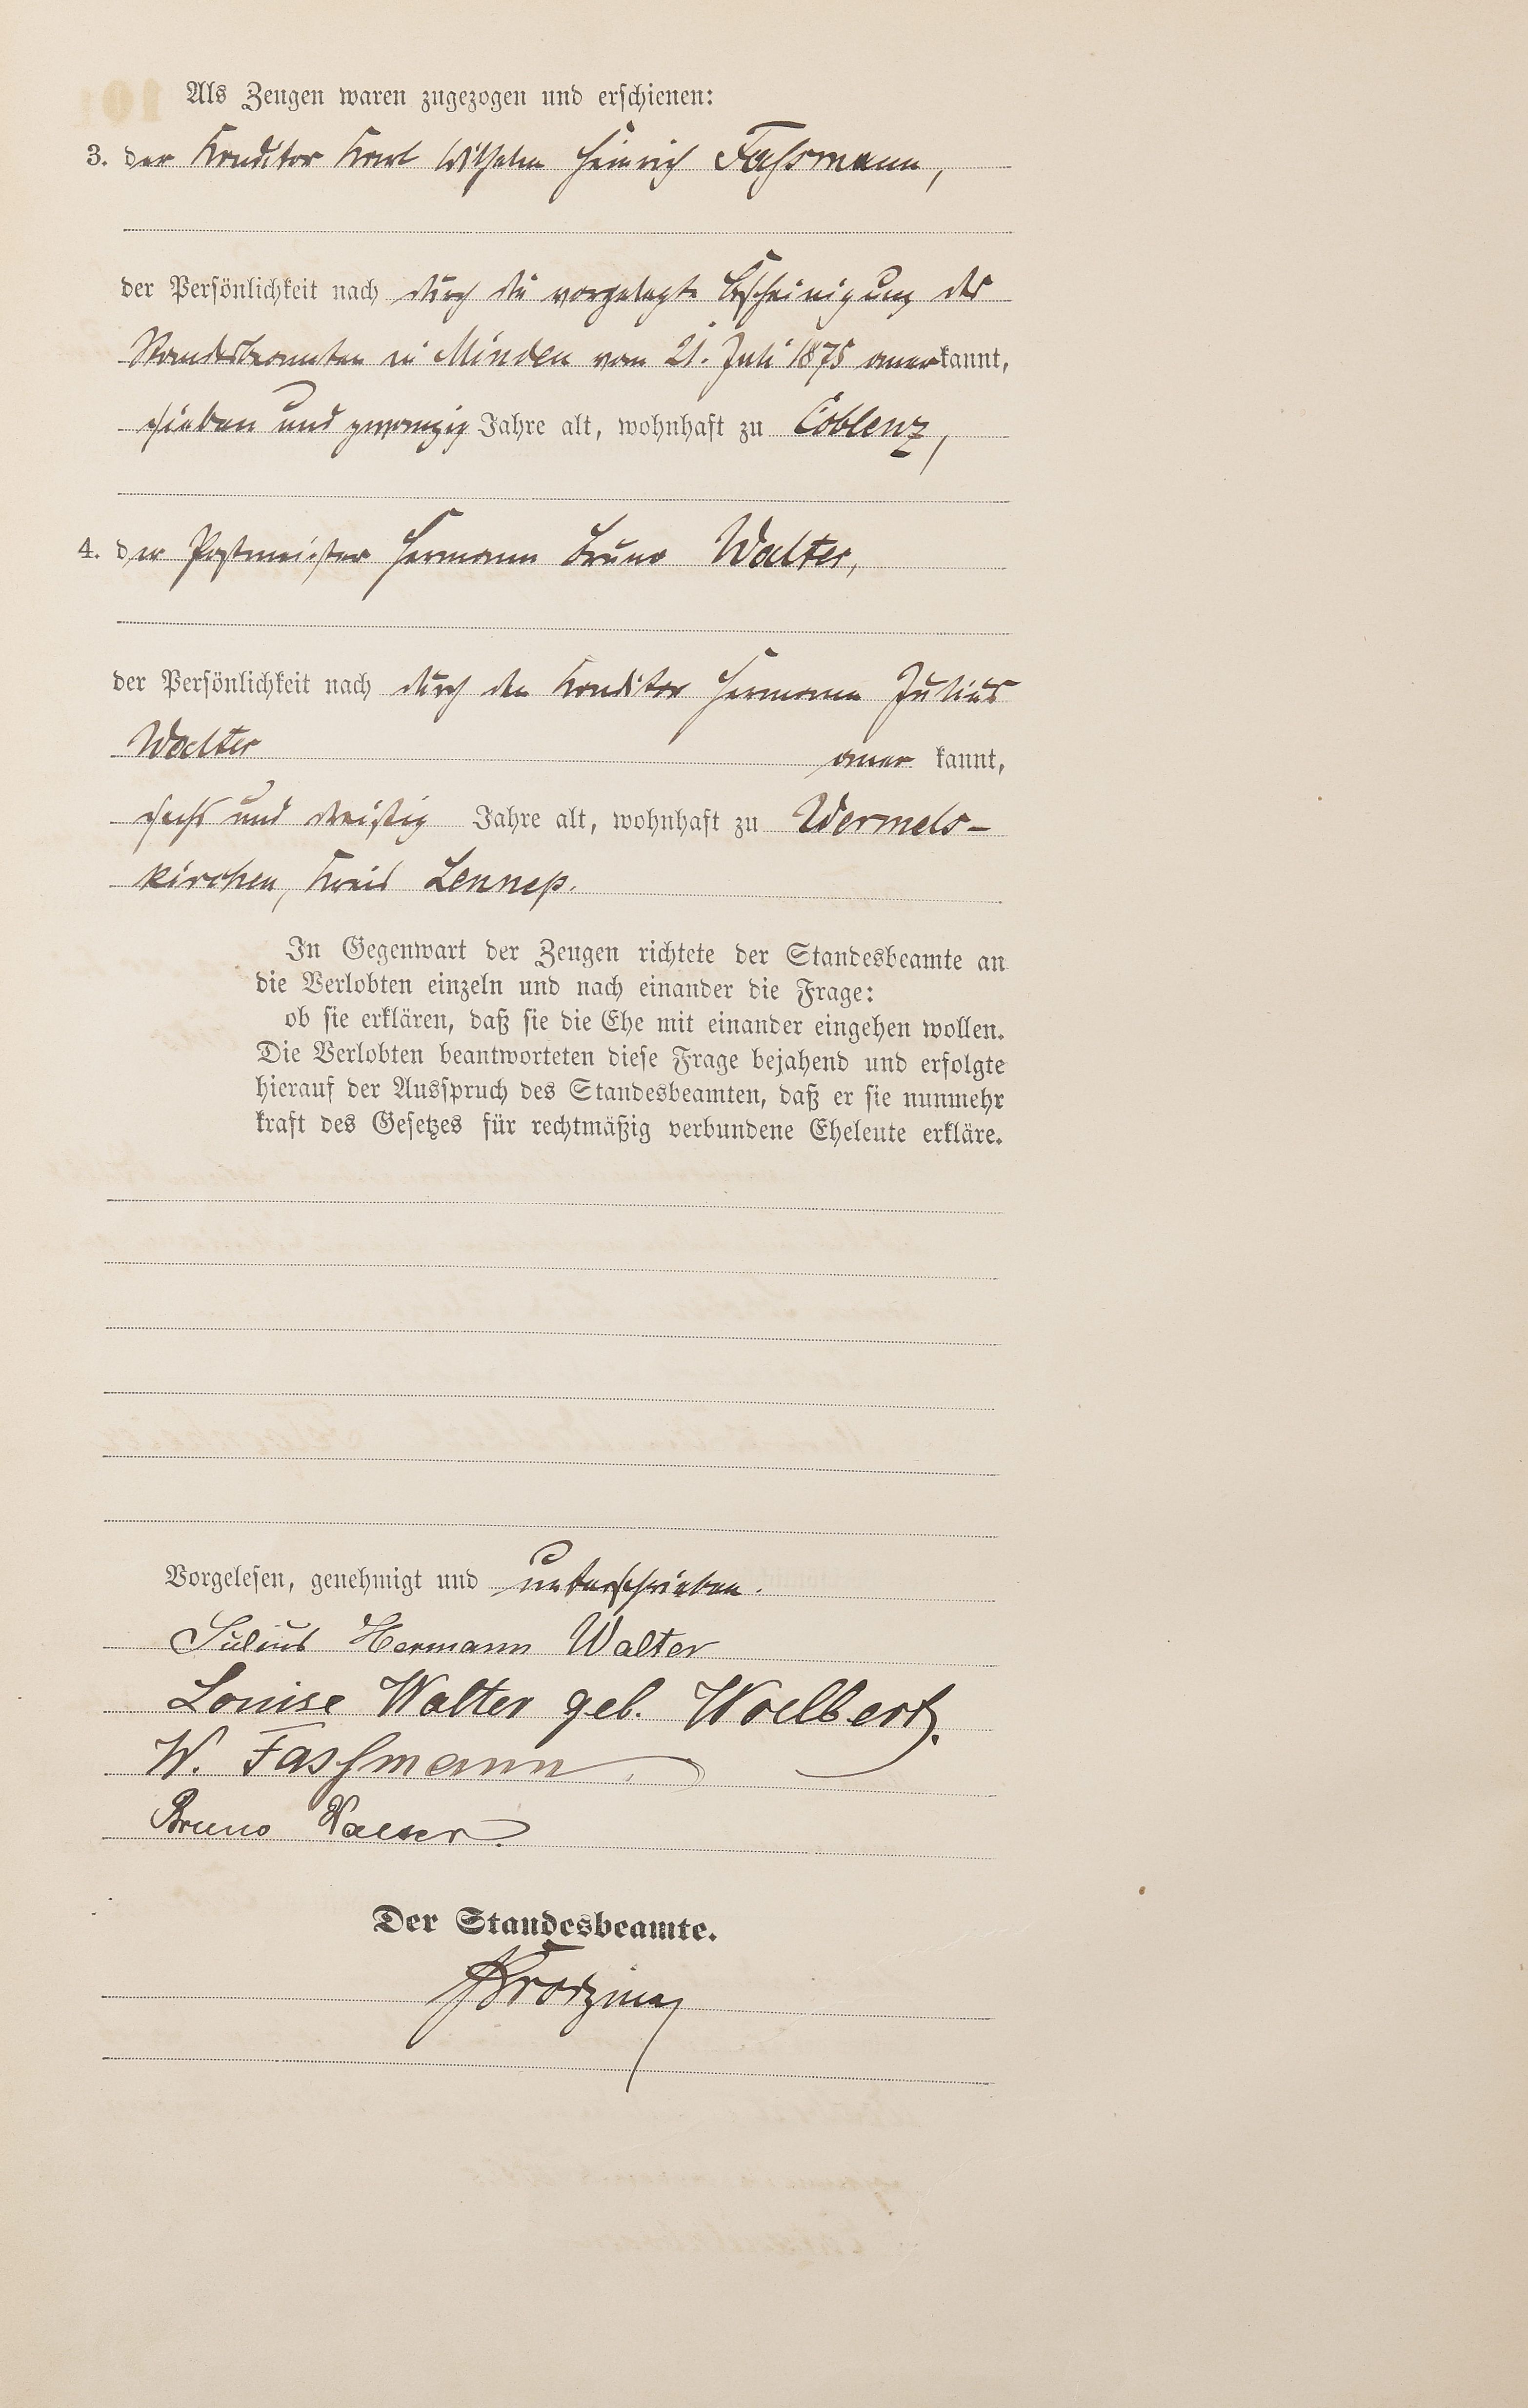 Als Zeugen waren zugezogen und erschienen:
3. der Konditor Karl Wilhelm Heinrich Faßmann,
der Persönlichkeit nach durch die vorgelegte Bescheinigung des
Standesbeamten in Minden vom 21. Juli 1875 anerkannt,
sieben und zwanzig Jahre alt, wohnhaft zu Coblenz,
4. der Postmeister Hermann Bruno Walter,
der Persönlichkeit nach durch den Konditor Hermann Julius
Walter aner kannt,
sechs und dreißig Jahre alt, wohnhaft zu Wermels-
kirchen, Kreis Lennep.
In Gegenwart der Zeugen richtete der Standesbeamte an
die Verlobten einzeln und nach einander die Frage:
ob sie erklären, daß sie die Ehe mit einander eingehen wollen.
Die Verlobten beantworteten diese Frage bejahend und erfolgte
hierauf der Ausspruch des Standesbeamten, daß er sie nunmehr
kraft des Gesetzes für rechtmäßig verbundene Eheleute erkläre.
Vorgelesen, genehmigt und unterschrieben.
Julius Hermann Walter
Louise Walter geb. Woelbert.
W. Fassmann.
Bruno Walter.
Der Standesbeamte.